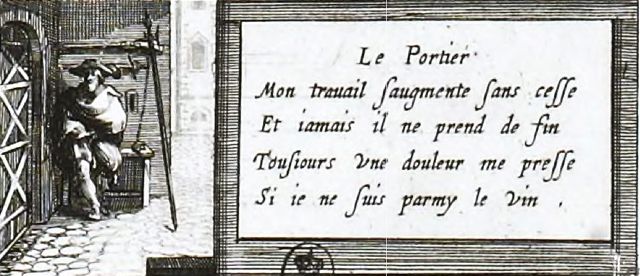 Le Portier
Mon trauail ſaugmente ſans ceſſe
Et iamais il ne prend de fin
Touſiours vne douleur me preſſe
Si ie ne ſuis parmy le vin .